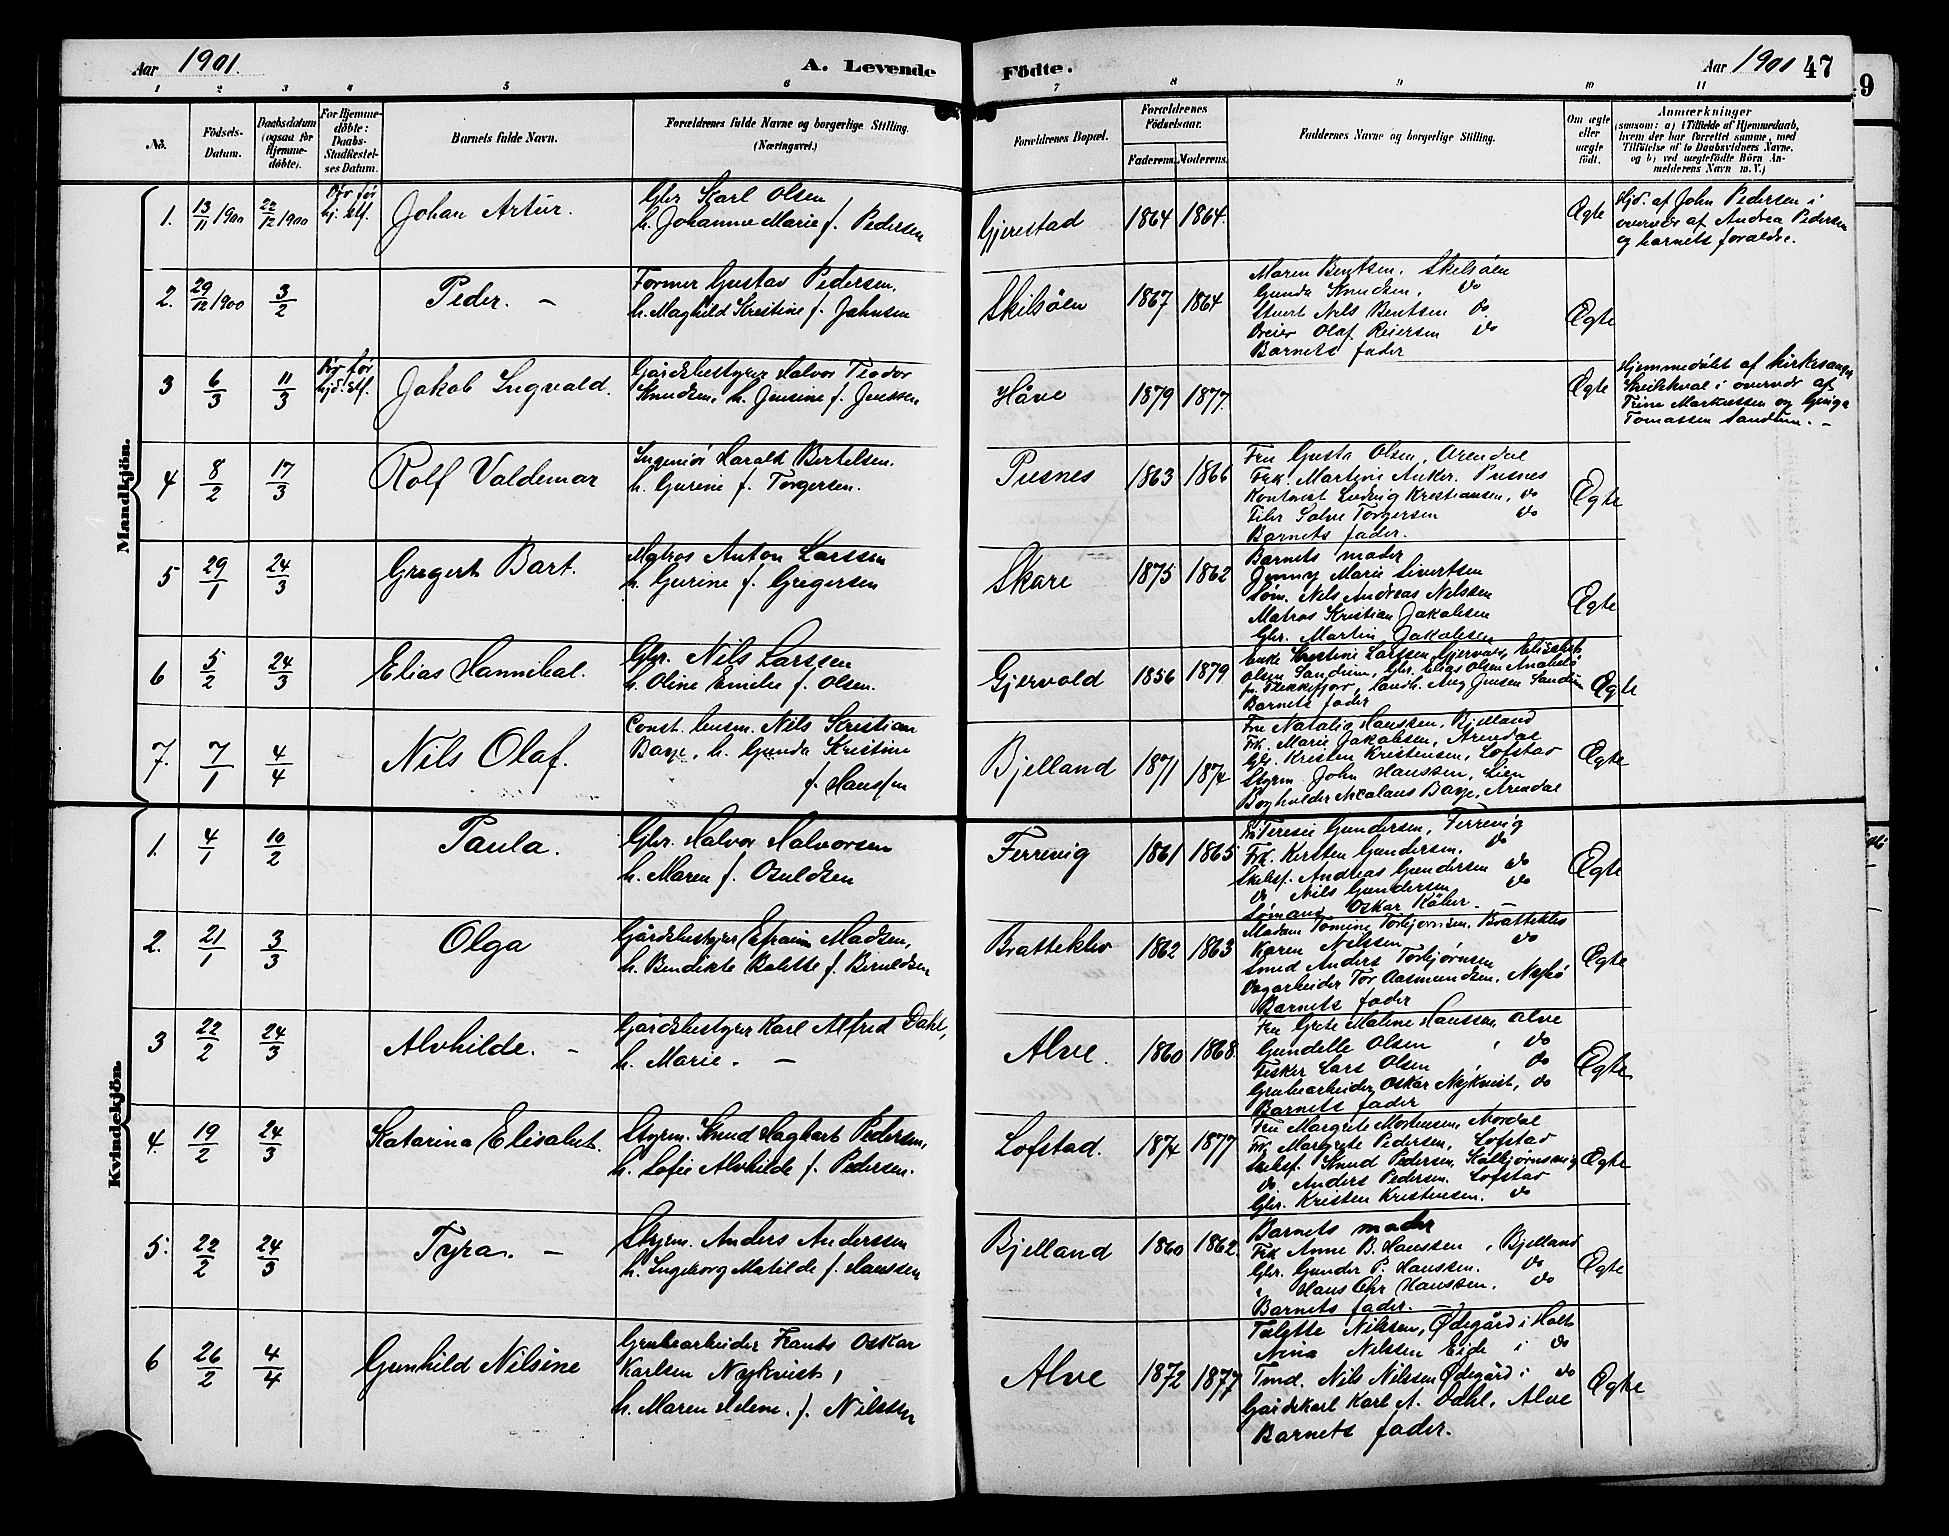 Aar 1901. A. Levende Födte. Aar 1901 47
1 2 3 4 5 6 7 8 9 10 11
No. Födsels-Datum. Daabsdatum (ogsaa for Hjemmedöbte). For Hjemmedöbte: Daabs-Stadfæstelses Datum. Barnets fulde Navn. Forældrenes fulde Navne og borgerlige Stilling. (Næringsvei.) Forældrenes Bopæl. Forældrenes Födselsaar. Faderens. Moderens. Faddernes Navne og borgerlige Stilling. Om ægte eller uægte födt. Anmærkninger (saasom: a) i Tilfælde af Hjemmedaab, hvem der har forrettet samme, med Tilföielse af to Daabsvidners Navne, og b) ved uægtefödte Börn Anmelderens Navn m. V.)
Mandkjön.
1. 13/11 1900 22/12 1900 Död før hj. stf. Johan Artur. Gbr Karl Olsen
h. Johanne Marie f. Pedersen
Gjerestad 1864 1864. Ægte
Hjd. af John Pedersen i
overvær af Andrea Pedersen
og barnets forældre.
2. 29/12 1900 3/2 Peder. –
Former Gustav Pedersen.
h. Maghild Kristine f. Jahnsen
Skilsöen 1867 1864
Maren Bentsen. Skilsöen
Gunda Knudsen. do
Stuert Nils Bentsen do
Olaf Reiersen do
Barnets fader
Ægte
3 6/3 11/3 Død før hjd. stf. Jakob Ingvald.
Gårdsbestyrer Halvor Teodor
Knudsen, h. Jensine f. Jenssen
Håve 1879 1877. Ægte
Hjemmedøbt af kirkesanger
i overvær af
Trine Markussen og
Tomassen Sandum. –
4 8/2 17/3 Rolf Valdemar
Ingeniör Harald Bertelsen.
h. Gurine f. Torgersen.
Pusnes 1863 1866
Fru Gusta Olsen, Arendal
Frk. Martine Anker. Pusnes
Kontorist Ludvig Kristiansen, do
Filer Salve Torgersen do
Barnets fader.
Ægte
5 29/1 24/3 Gregert Bart.
Matros Anton Larssen
h. Gurine f. Gregersen
Skare 1875 1862
Barnets moder
Jenny Marie Sivertsen
Søm. Nils Andreas Nilssen
Matros Kristian Jakobsen
Gbr. Martin Jakobsen
Ægte
6 5/2 24/3 Elias Hannibal.
Gbr. Nils Larssen
h. Oline Emilie f. Olsen.
Gjervold 1856 1879
Enke Kristine Larssen Gjervold, Elisabet
Olsen Sandum, Gbr. Elias Olsen
Flekkefjor, Landh. Aug Jensen Sandum
Barnets fader
Ægte
7. 7/1 4/4 Nils Olaf.
Const. Nils Kristian
Baye, h. Gunda Kristine
f. Hanssen
Bjelland 1871 1874
Fru Natalia Hanssen, Bjelland
Frk. Marie Jakobsen, Arendal
Gbr. Kristen Kristensen, Lofstad
Styrm. John Hanssen, Lien
Bogholder Nicolaus Baye, Arendal
Ægte
Kvindekjön.
1. 4/1 10/2 Paula.
Gbr. Halvor Halvorsen
h. Maren f. Osuldsen
Ferrevig 1861 1865
Fru Terese Gundersen, Ferrevig
Frk. Kirsten Gundersen. do
Skibsf. Andreas Gundersen do
do Nils Gundersen do
Sömand Oskar Köhler. –
Ægte
2. 21/1 3/3 Olga
Gårdsbestyrer Efraim Madsen,
h. Bendikte Bolette f. Beruldsen
Bratteklev 1862 1863
Madam Tomine Torbjørnsen. Bratteklev
Karen Nilssen do
Smed Anders Torbjørnsen
Dagarbeider Tor Aasmundsen, Neskö
Barnets fader
Ægte
3 22/2 24/3 Alvhilde. –
Gårdsbestyrer Karl Alfred Dahl,
h. Marie. –
Alve. 1860 1868.
Fru Grete Maline Hanssen, Alve
Gundelle Olsen , do
Fisker Lars Olsen do
Grubearbeider Oskar Nykvist, do
Barnets fader
Ægte
4. 19/2 24/3 Katarina Elisabet.
Styrm. Knud Hagbart Pedersen,
h. Sofie Alvhilde f. Pedersen.
Lofstad. 1874 1877
Fru Margrete Mortensen, Nordal
Frk Margrete Pedersen, Lofstad
Skibsf. Knud Pedersen, Kolbjørnsvig
do. Anders Pedersen. Lofstad
Gbr. Kristen Kristensen. do
Ægte
5. 22/2 24/3 Tyra. –
Styrm. Anders Anderssen
h. Ingeborg Matilde f. Hanssen
Bjelland 1860 1862.
Barnets moder
Frk Anne B. Hanssen , Bjelland
Gbr. Gunder P. Hanssen. do
" Hans Chr Hanssen. do
Barnets fader.
Ægte
6 26/2 4/4 Gunhild Nilsine
Grubearbeider Frants Oskar
Karlsen Nykvist,
h. Maren Helene. f. Nilssen
Alve 1872 1877
Talette Nilssen, Ødegård i Holt
Nina Nilssen Eigle i do
Tmd. Nils Nilssen Ødegård i do
Gårdskarl Karl A. Dahl. Alve
Barnets fader.
Ægte
9